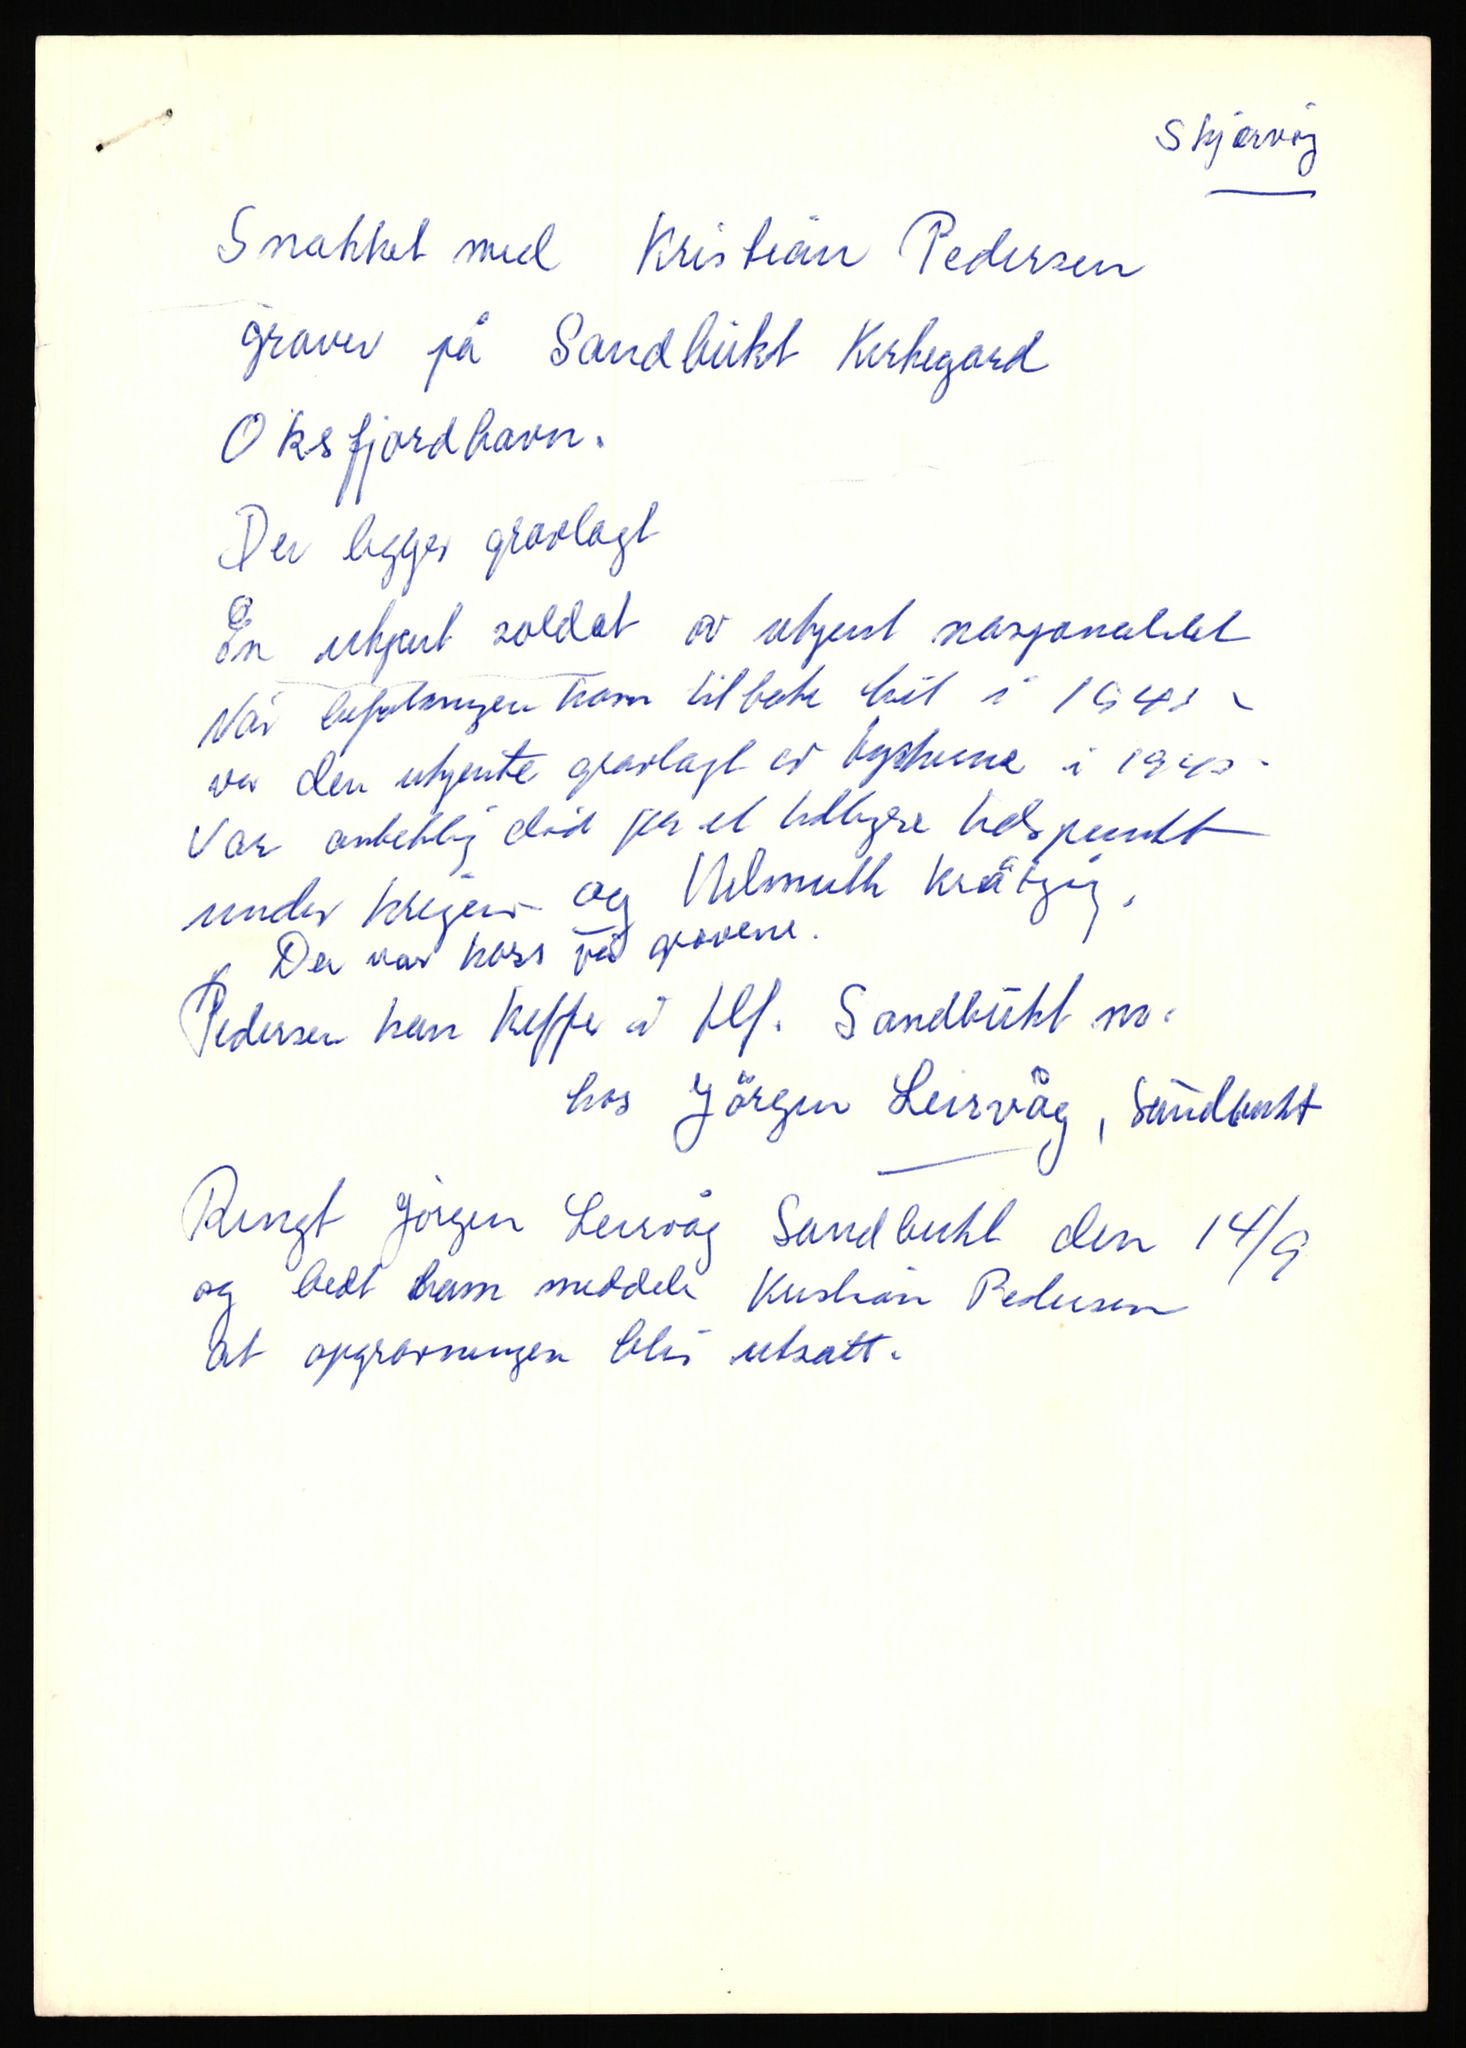 Skjervøy
Snakket med Kristian Pedersen
graver på Sandbukt Kirkegard
Oksfjordhavn.
Der ligger gravlagt
En ukjent soldat av ukjent nasjonalitet
Når befolkningen kom tilbake hit i 1945
var den ukjente gravlagt av tyskerne i 1945
Var antakelig død på et tidligere tidspunkt
under krigen og Helmuth Krätzig.
Der var kors på gravene.
Pedersen kan treffes i tlf. Sandbukt no.
hos Jörgen Leirvåg, Sandbukt
Ringt Jörgen Leirvåg Sandbukt den 14/9
og bedt ham meddele Kristian Pedersen
at opgravningen blir utsatt.